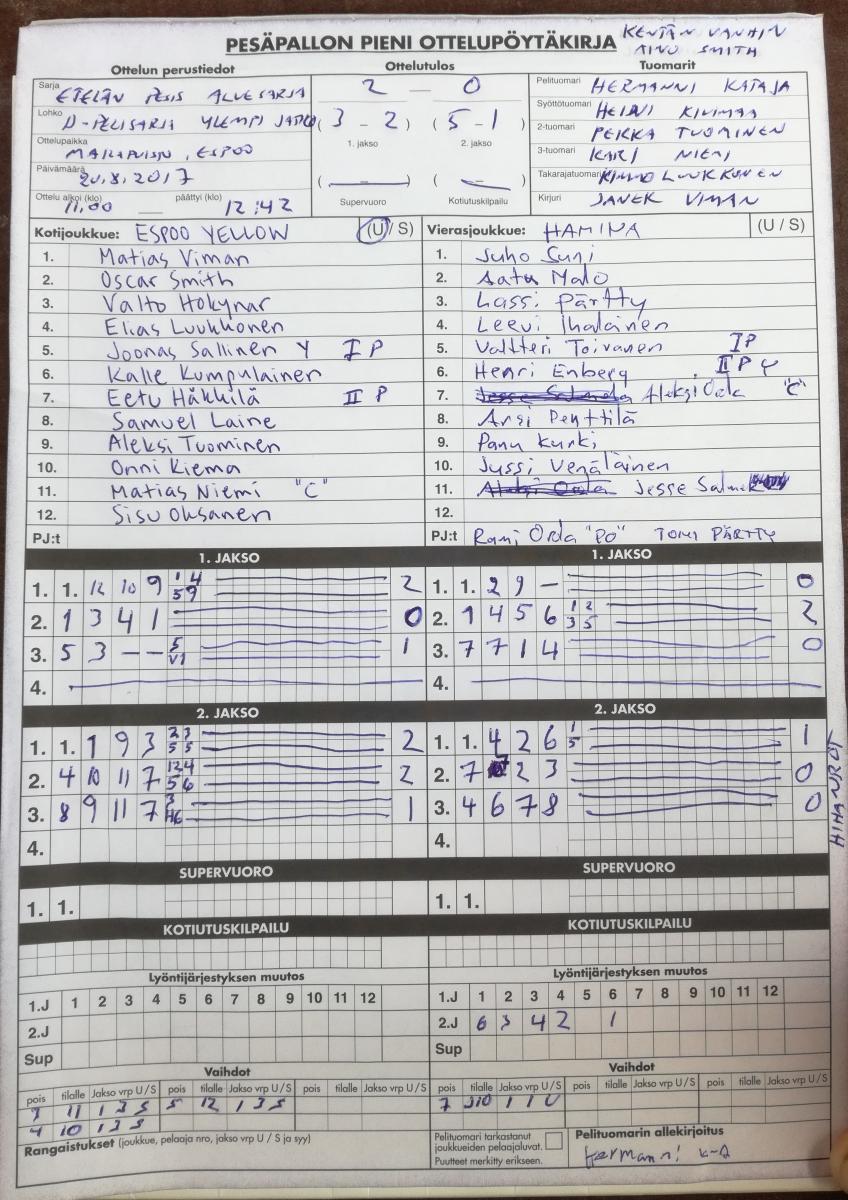 KENTÄN VANHIN
AINO SMITH
PESÄPALLON PIENI OTTELUPÖYTÄKIRJA
Ottelun perustiedot
Sarja
ETELÄN PESIS ALUESARJA
Lohko
D-PELISARJA YLEMPI JATKO
Ottelupaikka
, ESPOO
Päivämäärä
20.8.2017
Ottelu alkoi (klo) päättyi (klo)
11.00 — 12:42
Ottelutulos
2 — 0
(3 - 2) (5 - 1)
1. jakso 2. jakso
( — ) ( — )
Supervuoro Kotiutuskilpailu
Tuomarit
Pelituomari HERMANNI KATAJA
Syöttötuomari HEINI KIVIMAA
2-tuomari PEKKA TUOMINEN
3-tuomari KARI NIEMI
Takarajatuomari KIMMO LUUKKONEN
Kirjuri JANEK VIMAN
Kotijoukkue: ESPOO YELLOW (U / S)
1. Matias Viman
2. Oscar Smith
3. Valto Hokynar
4. Elias Luukkonen
5. Joonas Sallinen Y I P
6. Kalle Kumpulainen
7. Eetu Häkkilä II P
8. Samuel Laine
9. Aleksi Tuominen
10. Onni Kiema
11. Matias Niemi "C"
12. Sisu Oksanen
PJ:t
Vierasjoukkue: HAMINA (U / S)
1. Juho Suni
2. Aatu Malo
3. Lassi Pärtty
4. Leevi Ihalainen
5. Valtteri Toivanen I P
6. Henri Enberg II P Y
7. Aleksi Orda "C"
8. Arsi Penttilä
9. Panu Kurki
10. Jussi Venäläinen
11. Aleksi Orda Jesse
12.
PJ:t Rami Orda "PO" TOMI PÄRTTY
1. JAKSO
1. 1. 12 10 9 1 4 2
5 9
2. 1 3 4 1 0
3. 5 3 - - 5 1
V1
4.
1. JAKSO
1. 1. 2 9 - 0
2. 1 4 5 6 1 2 2
3 5
3. 7 7 1 4 0
4.
2. JAKSO
1. 1. 1 9 3 2 3 2
5 5
2. 4 10 11 7 12 4 2
5 6
3. 8 9 11 7 3 1
H6
4.
2. JAKSO
1. 1. 4 2 6 1 1
5
2. 7 2 3 0
3. 4 6 7 8 0
4.
HIHANROT
SUPERVUORO
1. 1.
SUPERVUORO
1. 1.
KOTIUTUSKILPAILU
KOTIUTUSKILPAILU
Lyöntijärjestyksen muutos
1.J 1 2 3 4 5 6 7 8 9 10 11 12
2.J
Sup
Lyöntijärjestyksen muutos
1.J 1 2 3 4 5 6 7 8 9 10 11 12
2.J 6 3 4 2 1
Sup
Vaihdot
pois tilalle Jakso vrp U/S pois tilalle Jakso vrp U/S pois tilalle Jakso vrp U/S
11 1 3 S 5 12 1 3 S
4 10 1 3 S
Vaihdot
pois tilalle Jakso vrp U/S pois tilalle Jakso vrp U/S pois tilalle Jakso vrp U/S
7 10 1 1 U
Rangaistukset (joukkue, pelaaja nro, jakso vrp U / S ja syy)
Pelituomari tarkastanut
joukkueiden pelaajaluvat.
Puutteet merkitty erikseen.
Pelituomarin allekirjoitus
Hermanni